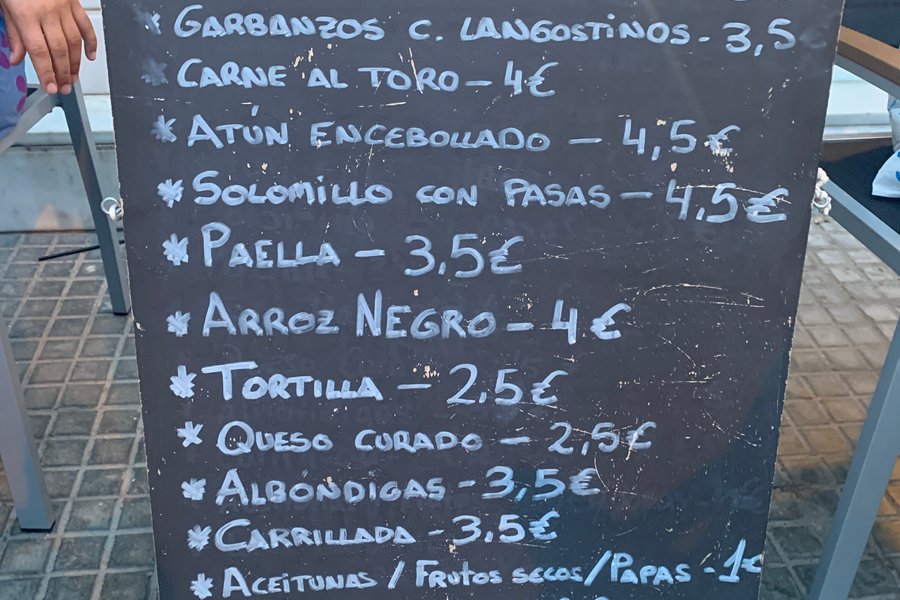 * GARBANZOS C. LANGOSTINOS - 3,5
* CARNE AL TORO - 4€
* ATÚN ENCEBOLLADO - 4,5€
* SOLOMILLO CON PASAS - 4,5€
* PAELLA - 3,5€
* ARROZ NEGRO - 4€
* TORTILLA - 2,5€
* QUESO CURADO - 2,5€
* ALBÓNDIGAS - 3,5€
* CARRILLADA - 3,5€
* ACEITUNAS / FRUTOS SECOS / PAPAS - 1€